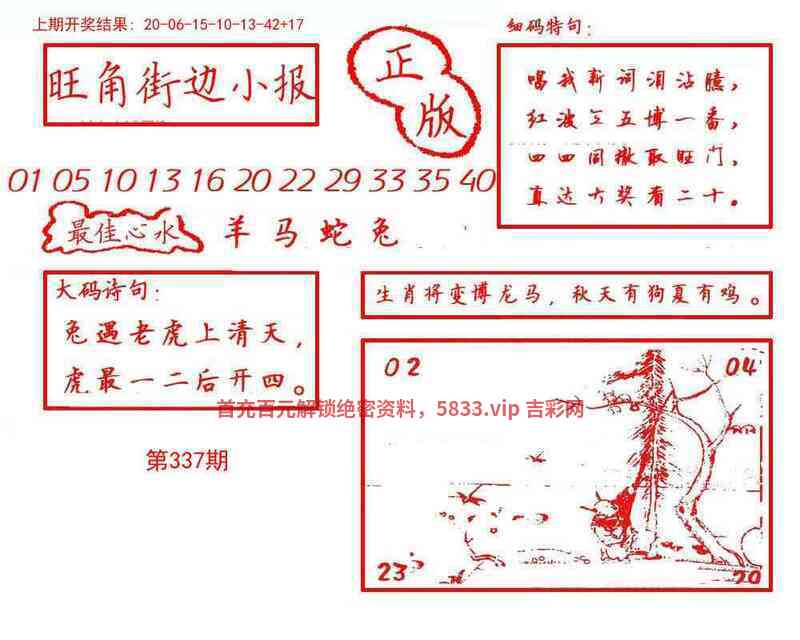 上期开奖结果：20-06-15-10-13-42+17
旺角街边小报
正版
细码特句：
唱我新词泪沾臆，
红波三五博一番，
四四同撤取旺门，
直达大奖看二十。
01 05 10 13 16 20 22 29 33 35 40
最佳心水 羊马蛇兔
大码诗句：
兔遇老虎上清天，
虎最一二后开四。
生肖将变博龙马，秋天有狗夏有鸡。
首充百元解锁绝密资料，5833.vip 吉彩网
第337期
02
04
23
20